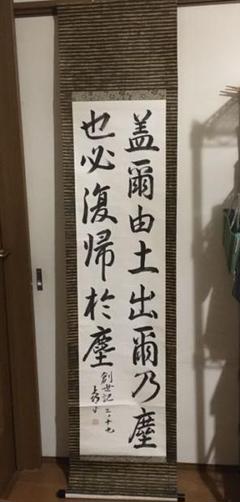 盖爾由土出爾乃塵
也必復帰於塵
創世記三ノ十九